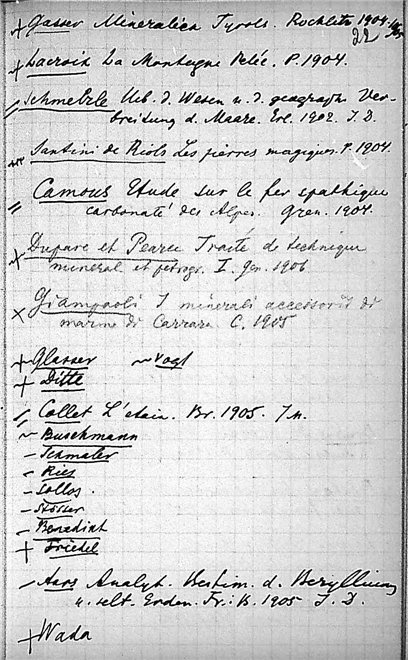 + Gasser Mineralien Tyrols. Rochlitz 1904.
22
+ Lacroix La Montagne Pelée. P. 1904.
Schmelzle Ueb. d. Wesen u. d. geograph. Ver-
breitung d. Maare. Erl. 1902. I. D.
Santini de Riols Les pierres magiques. P. 1904.
Camous Etude sur le fer spathique
carbonaté des Alpes. Gren. 1904.
+ Duparc et Pearce Traité de technique
minéral. et pétrogr. I. Gen. 1906
× Giampaoli I minerali accessorii di
marmo di Carrara C. 1905
+ Glasser ~ Vogt
+ Ditte
Collet L'étain. Br. 1905.
~ Buschmann
- Schmaler
- Ries
- Sollos.
- Stösser
- Benedikt
+ Friedel
- Aars Analyt. Bestim. d. Beryllium
u. selt. Erden. Fr. i. B. 1905 I. D.
+ Wada